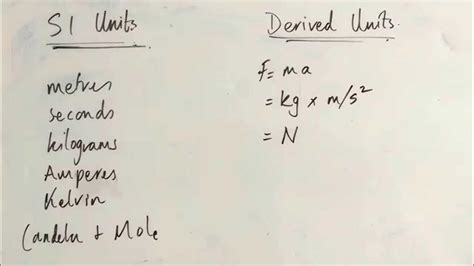 SI Units
metres
seconds
kilograms
Amperes
Kelvin
Candela + Mole
Derived Units.
F = ma
= kg × m/s²
= N